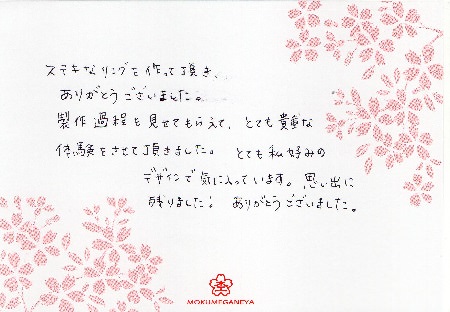 ステキなリングを作って頂き、
ありがとうございました。
製作過程も見せてもらえて、とても貴重な
体験をさせて頂きました。 とても私好みの
デザインで気に入っています。思い出に
残りました！ ありがとうございました。
MOKUMEGANEYA